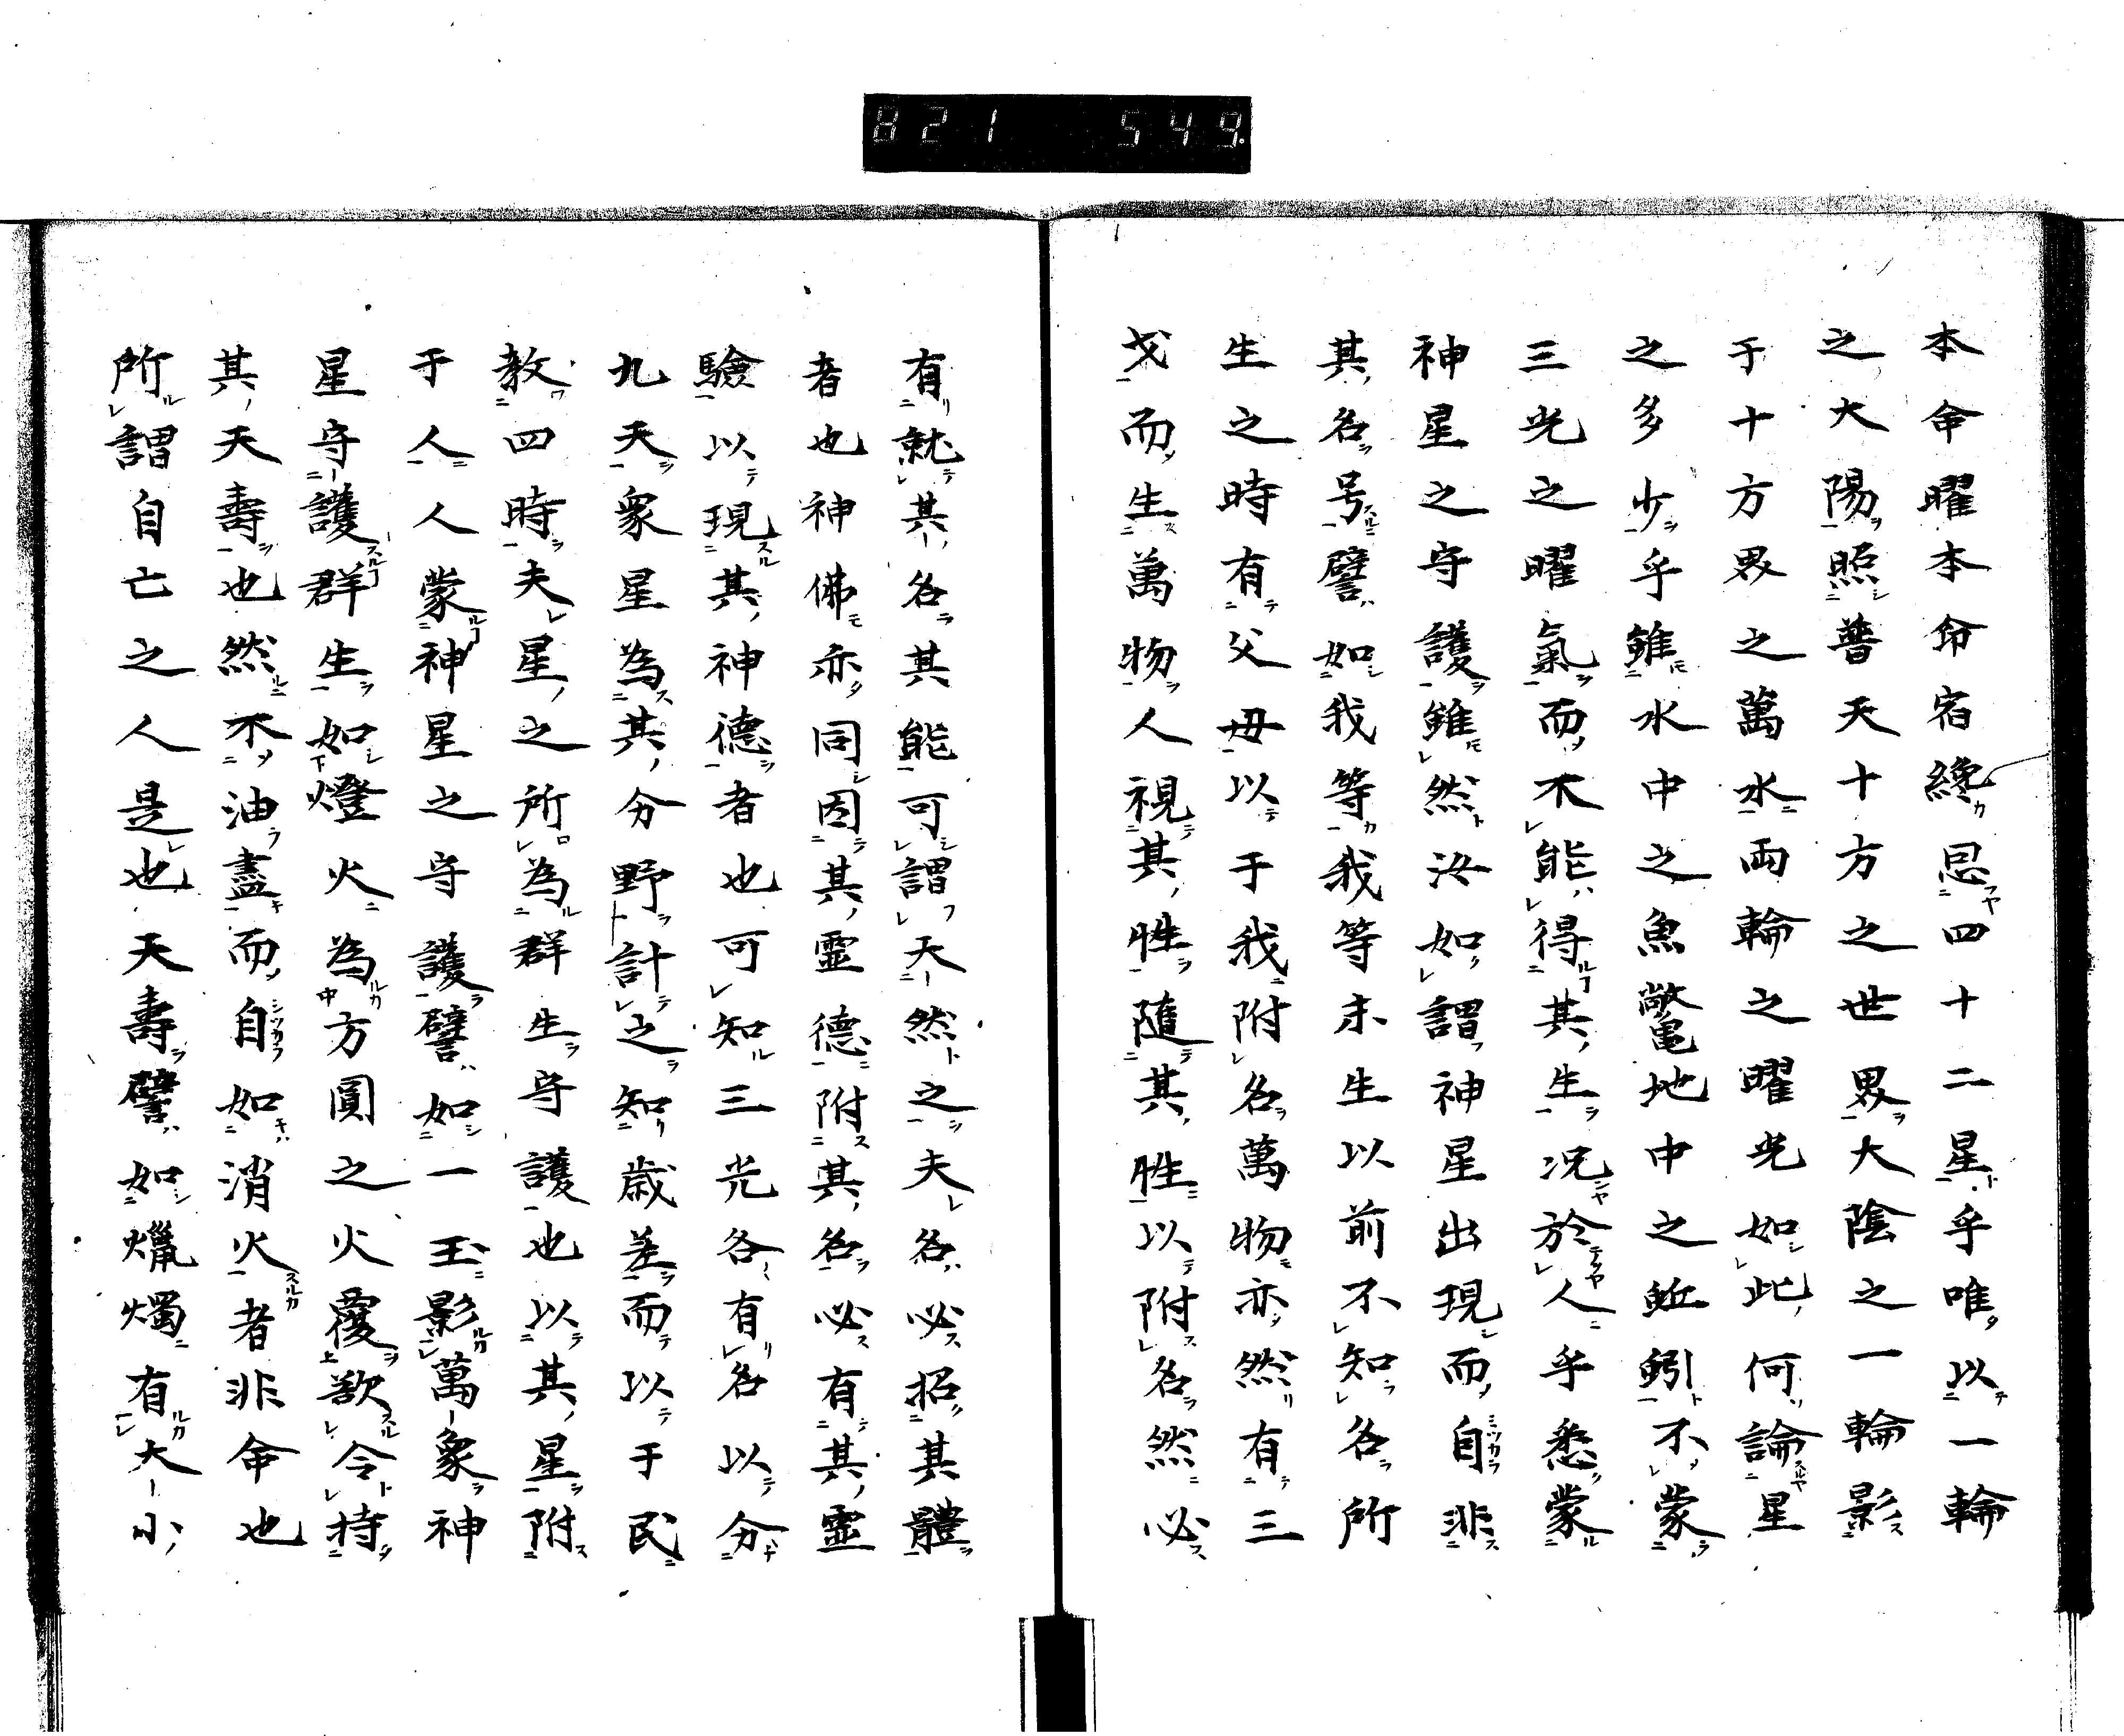 821 549.
本命曜本命宿纔忌四十二星乎唯以一輪
之大陽照普天十方之世界大陰之一輪影
于十方界之萬水両輪之曜光如此何論星
之多少乎雖水中之魚鼈地中之蚯蚓不蒙
三光之曜氣而不能得其生况於人乎悉蒙
神星之守護雖然汝如謂神星出現而自非
其名号譬如我等我等未生以前不知名所
生之時有父母以于我附名萬物亦然有三
才而生萬物人視其性隨其性以附名然必
有就其名其能可謂天然之夫名必招其體
者也神佛亦同因其靈德附其名必有其靈
驗以現其神德者也可知三光各有名以分
九天衆星為其分野計之知歳差而以于民
教四時夫星之所為群生守護也以其星附
于人人蒙神星之守護譬如一玉影萬象神
星守護群生如燈火為方圓之火覆欲令持
其天壽也然不油盡而自如消火者非命也
所謂自亡之人是也天壽譬如蠟燭有大小